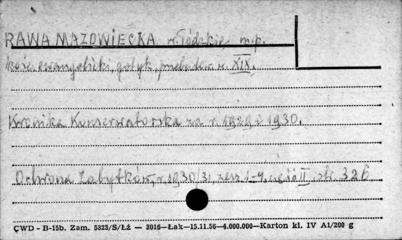 RAWA MAZOWIECKA w. łódzkie m.p.
kośc. ewangelicki, gotyk, przebud. w XIX.
Kronika Konserwatorska za r. 1929 i 1930.
Ochrona Zabytków, r. 1930/31, zesz. 1-4, część II, str. 326
ÇWD - B-15b. Zam. 5323/S/Łż — 3016—Łak—15.11.56—4.000.000—Karton kl. IV A1/200 g